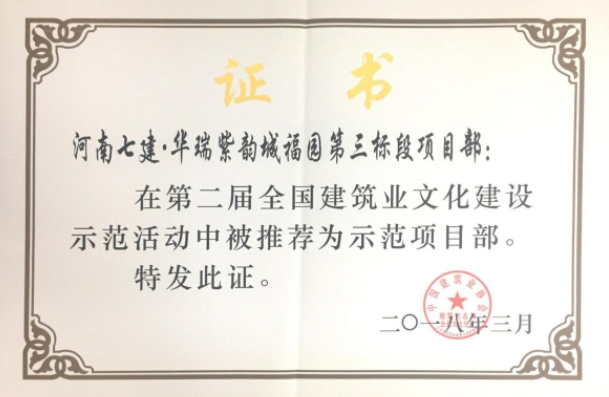 证书
河南七建·华瑞紫韵城福园第三标段项目部：
在第二届全国建筑业文化建设
示范活动中被推荐为示范项目部。
特发此证。
中国建筑业协会
二〇一八年三月